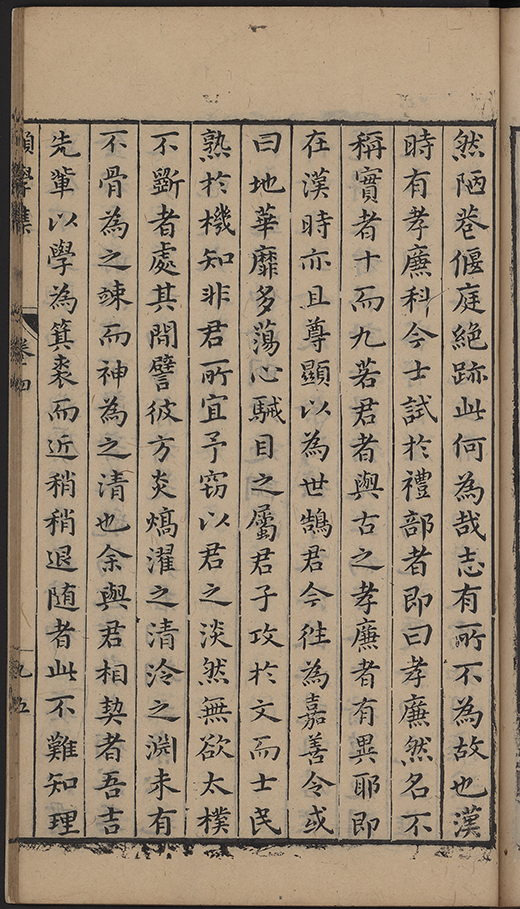 然陋巷偃庭絶跡此何為哉志有所不為故也漢
時有孝廉科今士試於禮部者即曰孝廉然名不
稱實者十而九若君者與古之孝廉者有異耶即
在漢時亦且尊顯以為世鵠君今往為嘉善令或
曰地華靡多蕩心駴目之屬君子攻於文而士民
熟於機知非君所宜予窃以君之淡然無欲太樸
不斲者處其間譬彼方炎熇濯之清泠之淵未有
不骨為之竦而神為之清也余與君相契者吾吉
先輩以學為箕裘而近稍稍退随者此不難知理
願學集
卷四
九五